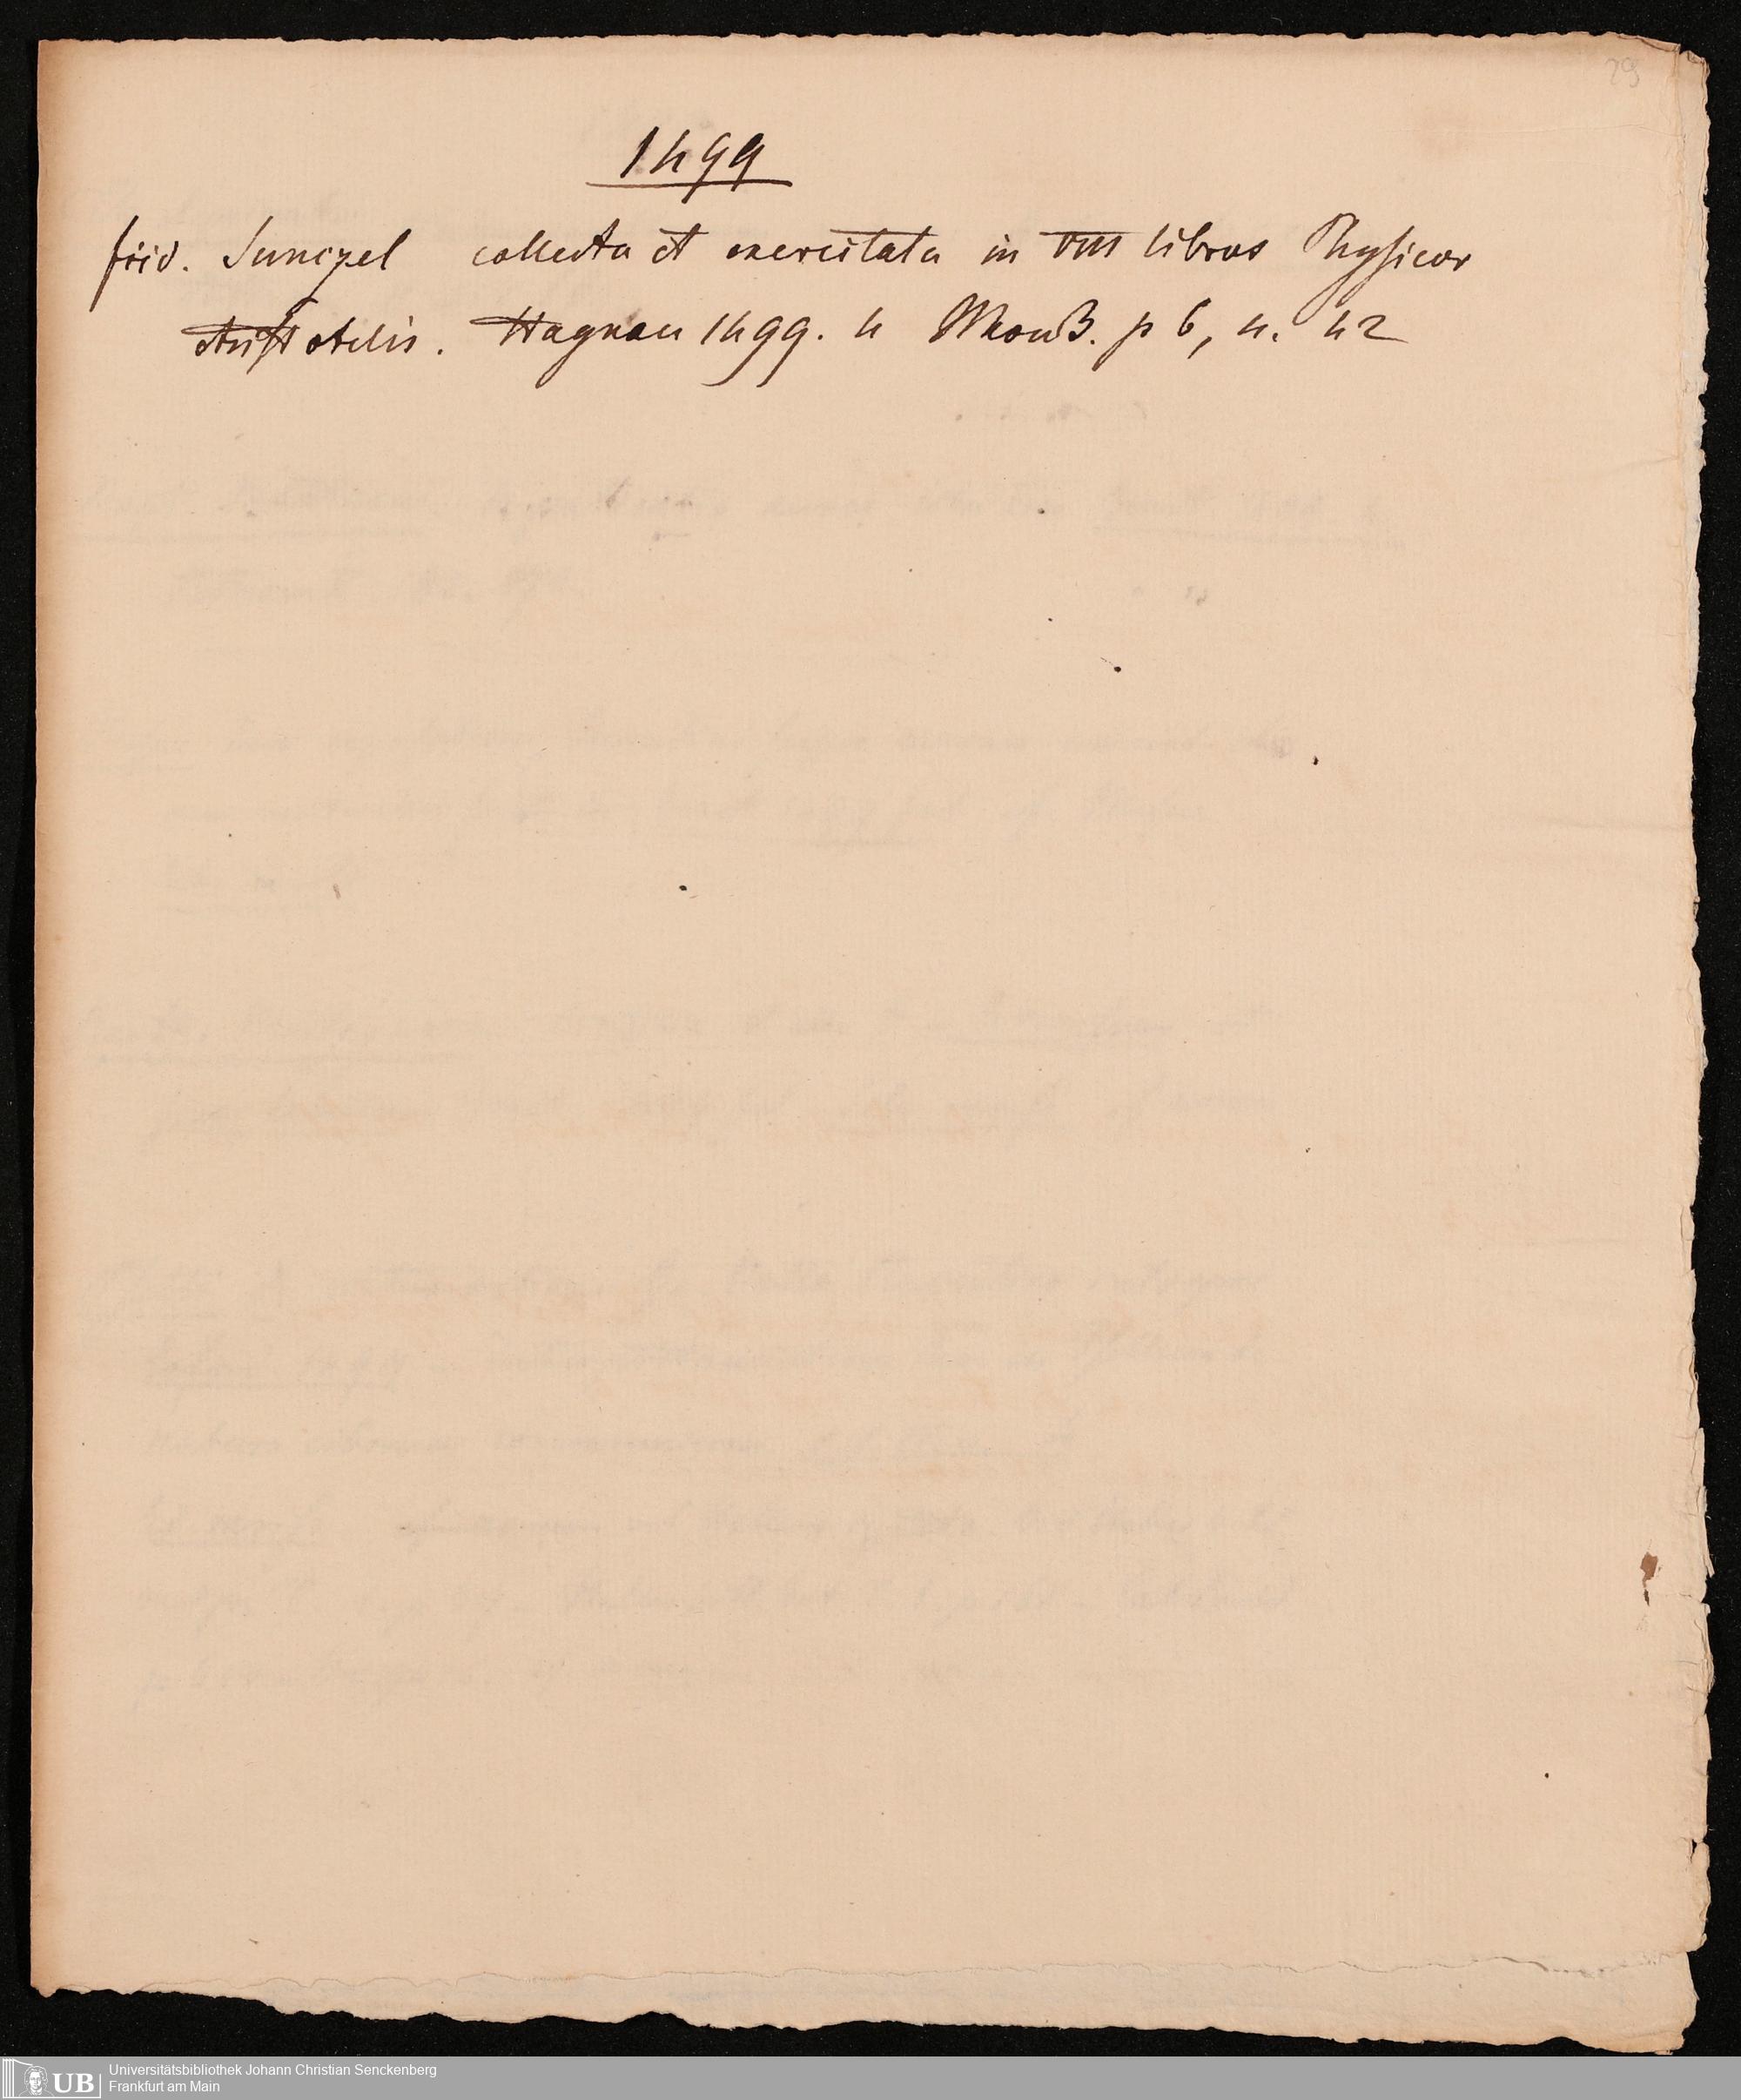 29
1499
frid. Sunczel collecta et exercitata in VIII libros Physicor
Aristotelis. Hagnau 1499. 4 p 6, n. 42
UB
Universitätsbibliothek Johann Christian Senckenberg
Frankfurt am Main